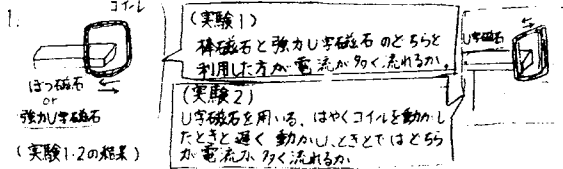 1.
コイル
ぼう磁石
or
強力U字磁石
(実験1・2の結果)
(実験1)
棒磁石と強力U字磁石のどちらを
利用した方が電流が多く流れるか。
(実験2)
U字磁石を用いる、はやくコイルを動かし
たときと遅く動かし、ときとではどちら
が電流が多く流れるか
U字磁石